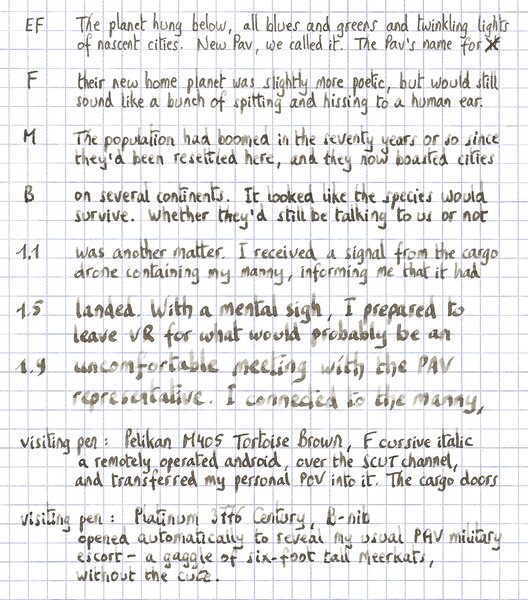 EF The planet hung below, all blues and greens and twinkling lights
of nascent cities. New Pav, we called it. The Pav's name for
F their new home planet was slightly more poetic, but would still
sound like a bunch of spitting and hissing to a human ear.
M The population had boomed in the seventy years or so since
they'd been resettled here, and they now boasted cities
B on several continents. It looked like the species would
survive. Whether they'd still be talking to us or not
1.1 was another matter. I received a signal from the cargo
drone containing my manny, informing me that it had
1.5 landed. With a mental sigh, I prepared to
leave VR for what would probably be an
1.9 uncomfortable meeting with the PAV
representative. I connected to the manny,
visiting pen: Pelikan M405 Tortoise Brown, F cursive italic
a remotely operated android, over the SCUT channel,
and transferred my personal POV into it. The cargo doors
visiting pen: Platinum 3776 Century, B-nib
opened automatically to reveal my usual PAV military
escort – a gaggle of six-foot tall meerkats,
without the cute.